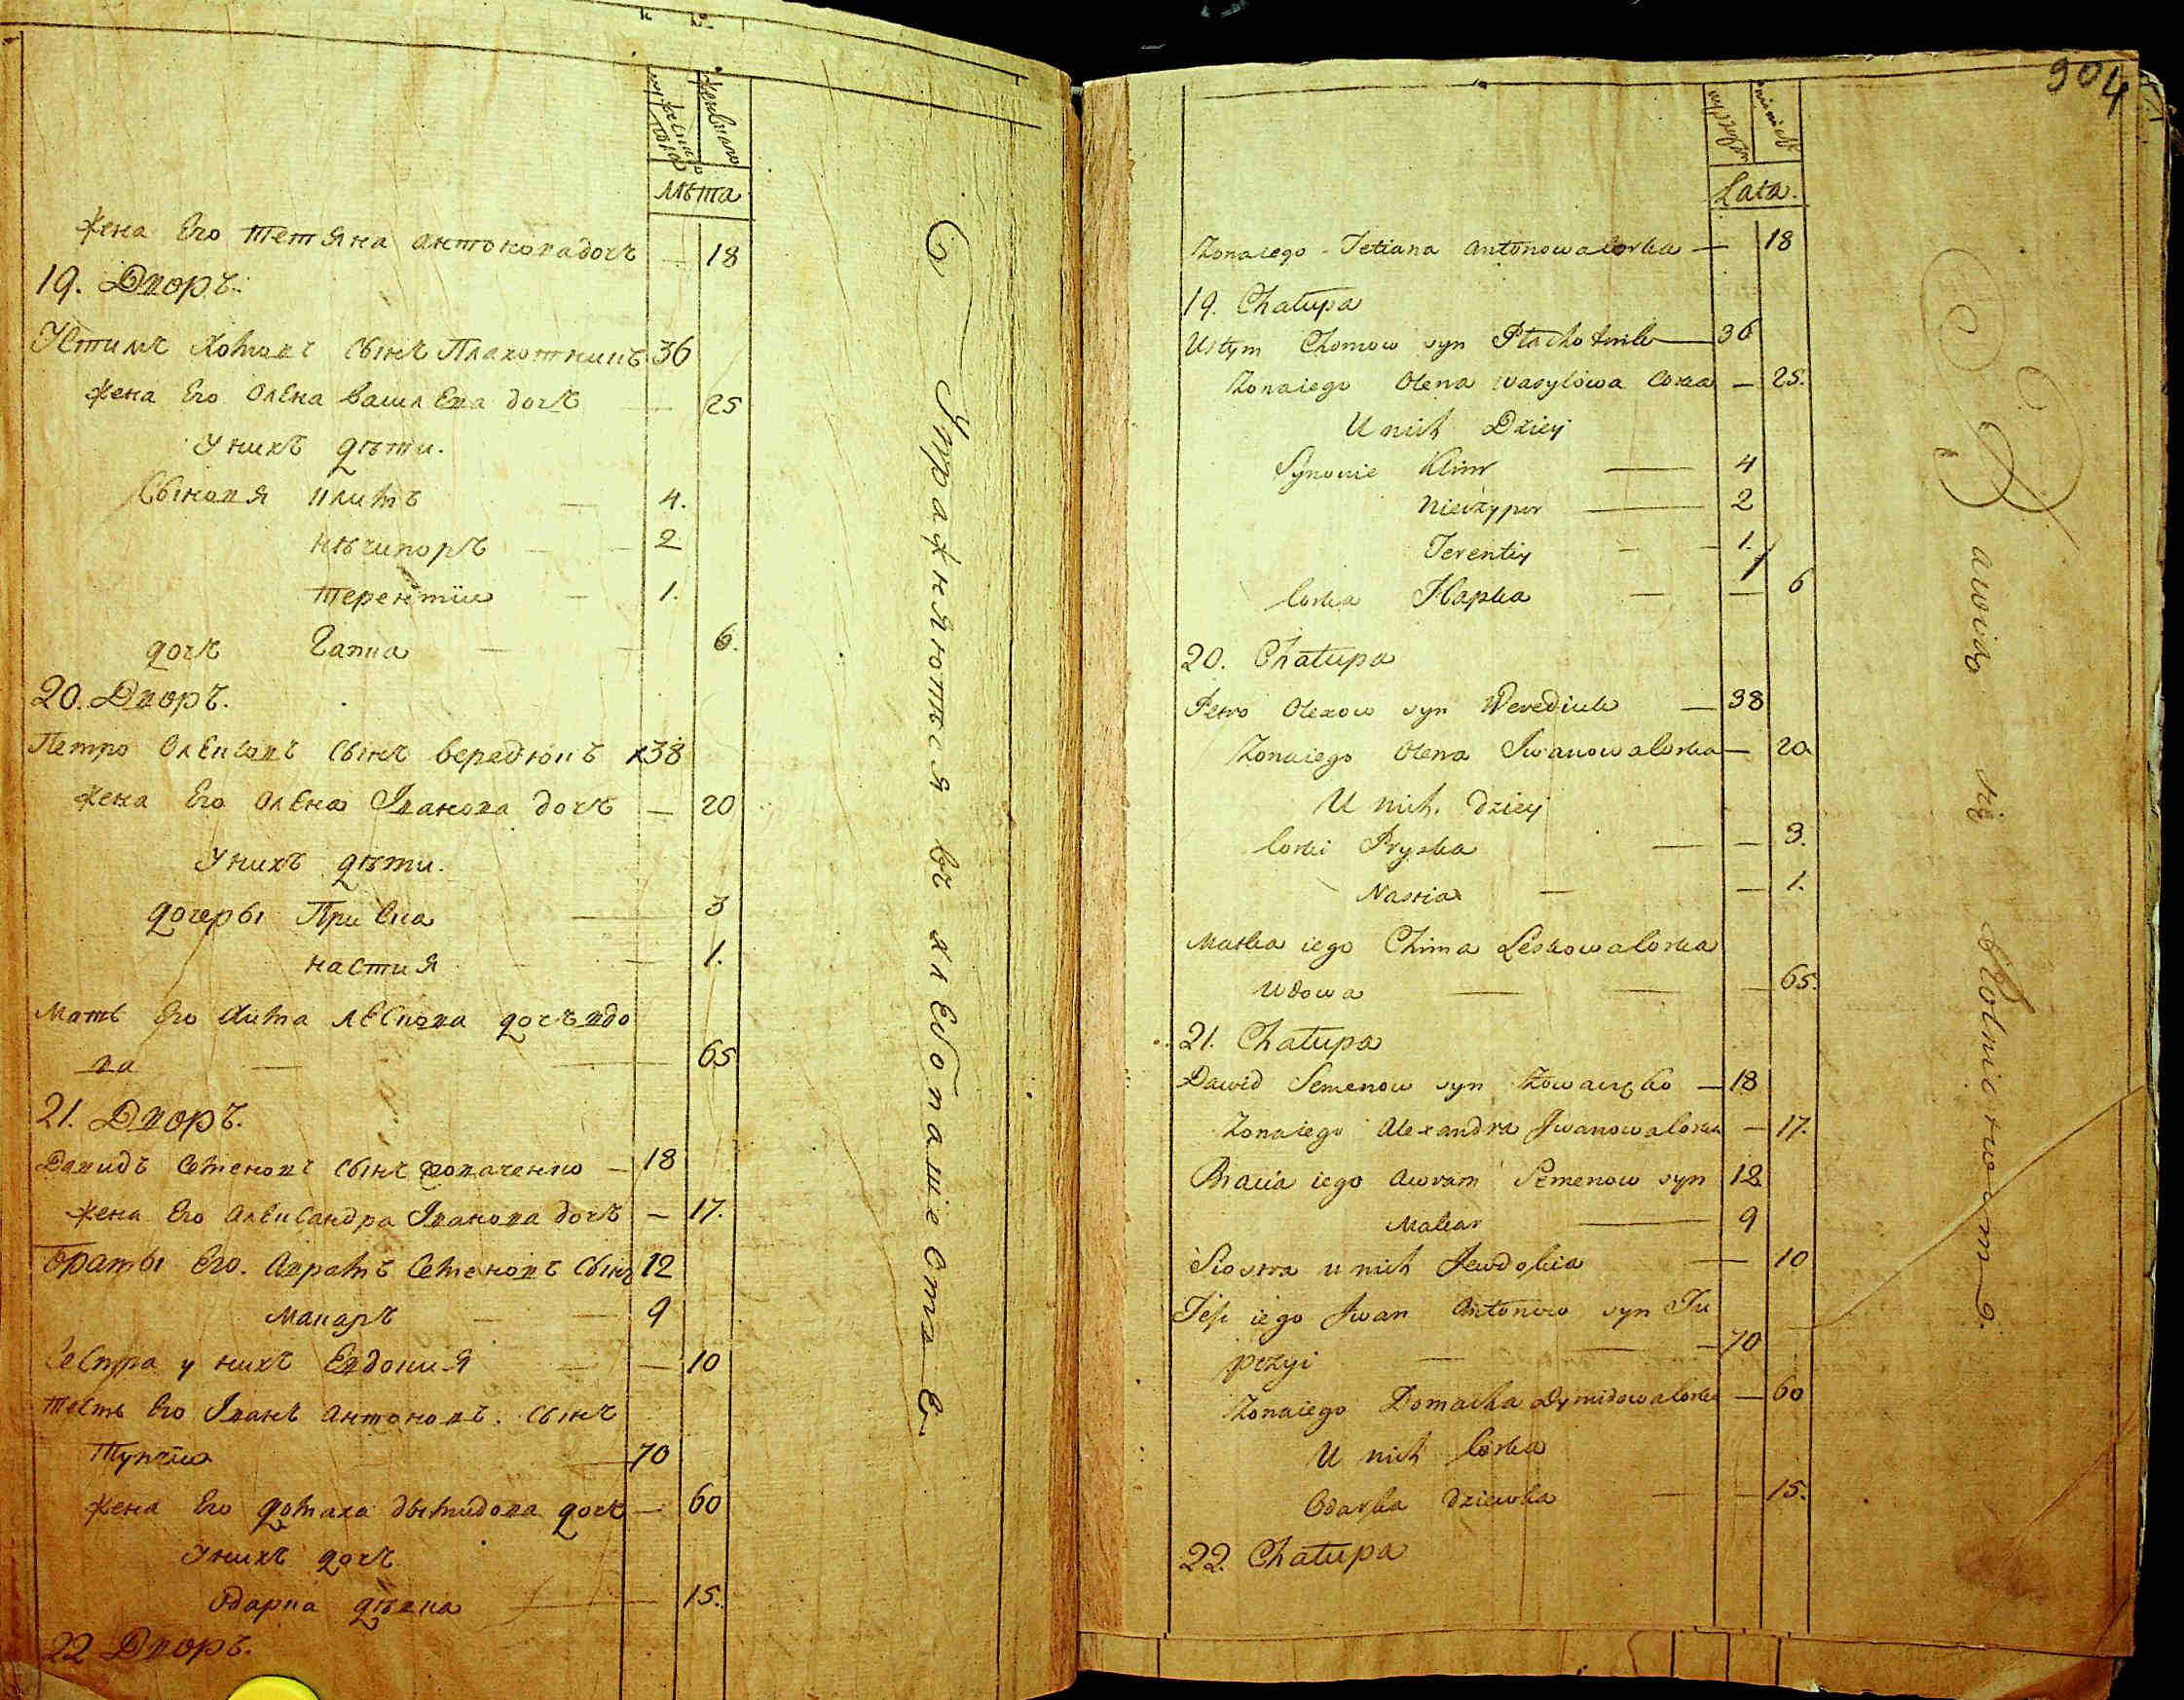 лѣта
жена Его тетяна антонова дочь — 18
19. Дворъ.
Устимъ Хомовъ сынъ Плахотникъ 36
жена Его Олена василева дочь — 25
У нихъ дѣти.
Сыновя Климъ — 4.
нѣчипоръ — 2
терентіи — 1.
дочь Гапка — 6.
20. Дворъ.
Петро Олексовъ сынъ вередюкъ 38
жена Его Олена Іванова дочь — 20
У нихъ дѣти.
дочеры Приска — 3
настия — 1.
Мать Его Хима лескова дочь вдо
ва — 65
21. Дворъ.
Давидъ Семеновъ сынъ — 18
жена Его Александра Іванова дочь — 17.
браты Его. Аврамъ Семеновъ Сынъ 12
макаръ — 9
Сестра у нихъ Евдокия — 10
тесть Его Іванъ антоновъ. сынъ
Тупчіи — 70
жена Его домаха дымидова дочь — 60
У нихъ дочь
Одарка дѣвка — 15.
22 Дворъ.
Упражняются въ хлебопашестве.
904
Lata.
Zona iego Tetiana Antonowa Corka — 18
19. Chałupa
Ustym Chomow syn Płachotnik — 36
Zona iego Olena wasylowa Corka — 25.
U nich Dzieci
Synowie Klim — 4
Nieczypor — 2
Terentiy — 1.
Corka Hapka — 6
20. Chałupa
Petro Olexow syn Werediuk — 38
Zona iego Olena Iwanowa Corka — 20
U nich. Dzieci
Corki Pryska — 3.
Nastia — 1.
Matka iego Chima Leskowa Corka
Wdowa — 65.
21. Chałupa
Dawid Semenow syn — 18
Zona iego Alexandra Iwanowa Corka — 17.
Bracia iego Awram Semenow syn 12
Makar — 9
Siostra u nich Jewdokia — 10
Teść iego Iwan Antonow syn Tu
pczyi — 70
Zona iego Domacha Dymidowa Corka — 60
U nich Corka
Odarka dziewka — 15.
22. Chałupa
Bawią się Rolnictwem.